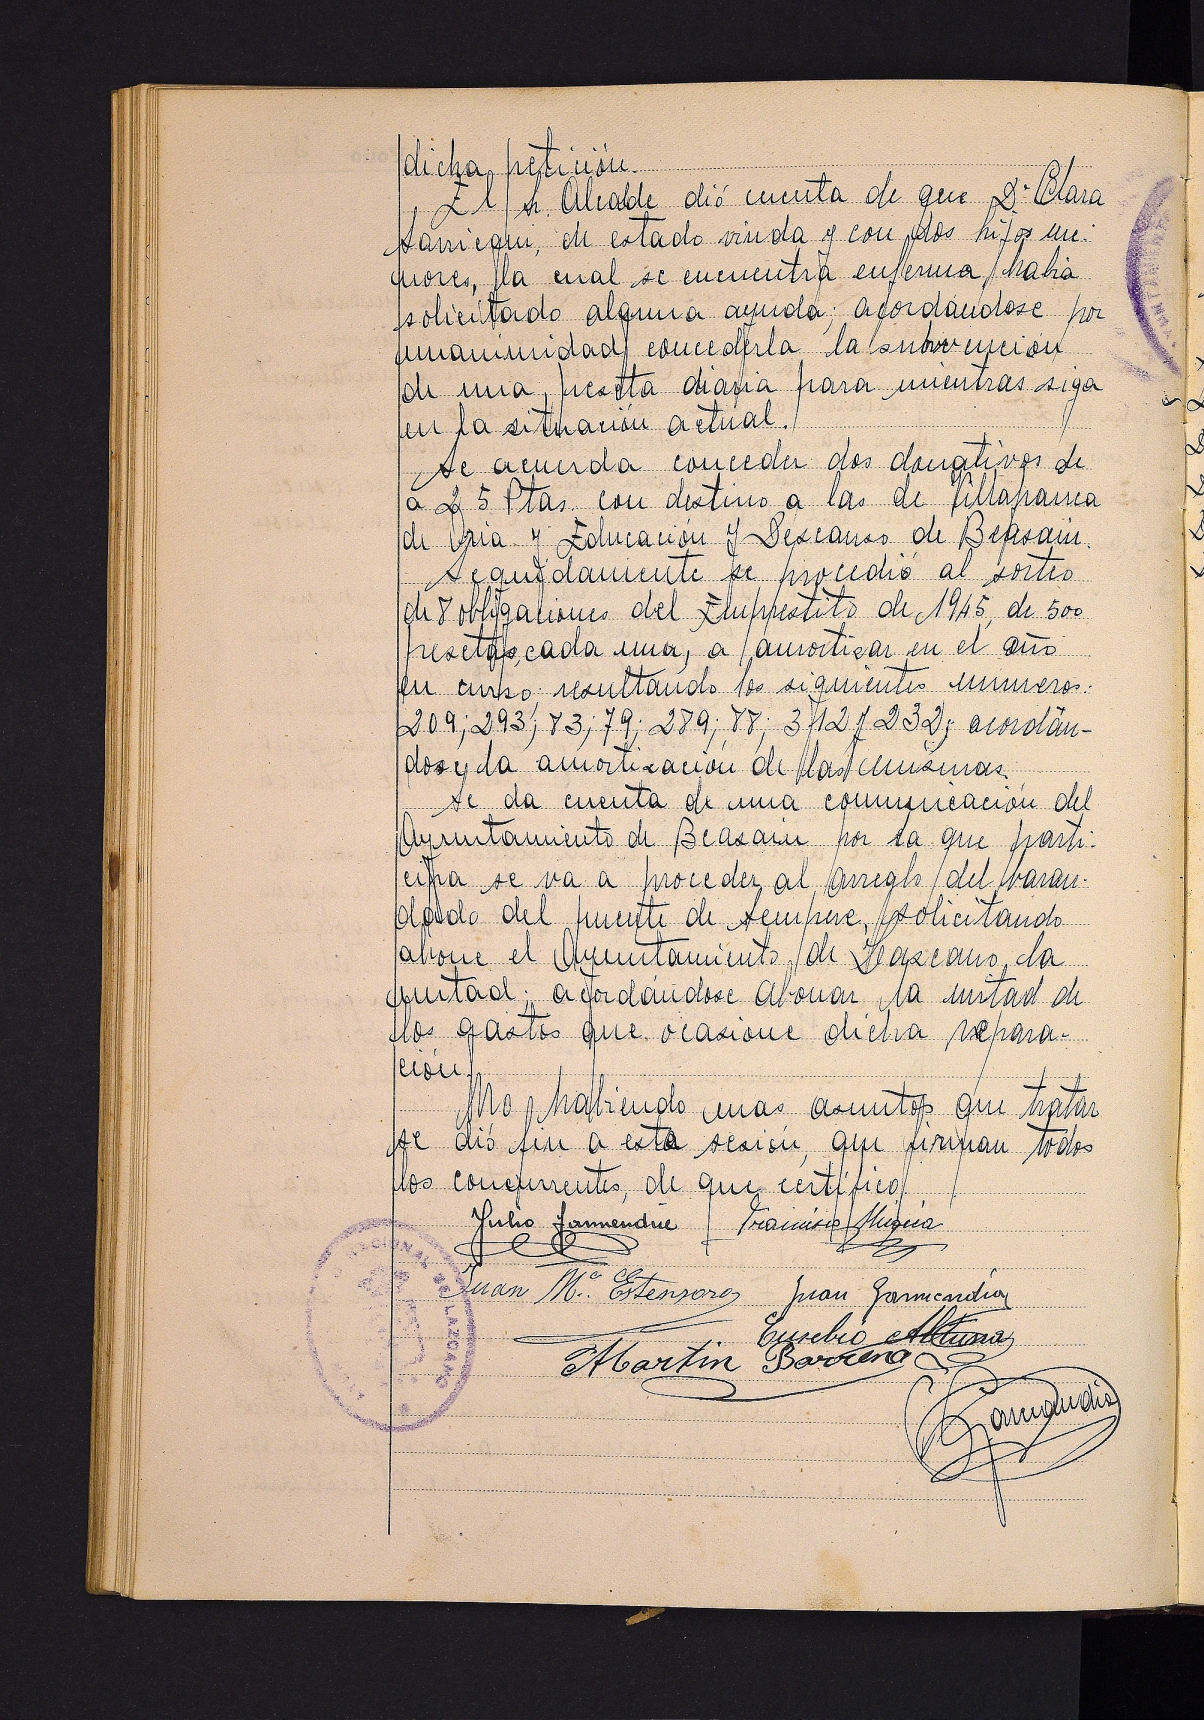 dicha petición.
El Sr. Alcalde dió cuenta de que Dª Clara
Sarriegui, de estado viuda y con dos hijos me-
nores, la cual se encuentra enferma, habia
solicitado alguna ayuda; acordándose por
unanimidad concederla la subvención
de una peseta diaria para mientras siga
en la situación actual.
Se acuerda conceder dos donativos de
a 25 Ptas. con destino a las de Villafranca
de Oria y Educación y Descanso de Beasain.
Seguidamente se procedió al sorteo
de 8 obligaciones del Empréstito de 1945, de 500
pesetas cada una, a amortizar en el año
en curso; resultando los siguientes numeros:
209; 293; 83; 79; 289; 88; 312 y 232; acordán-
dose la amortización de las mismas.
Se da cuenta de una comunicación del
Ayuntamiento de Beasain por la que parti-
cipa se va a proceder al arreglo del baran-
dado del puente de Sempere, solicitando
abone el Ayuntamiento de Lazcano la
mitad; acordándose abonar la mitad de
los gastos que ocasione dicha repara-
ción.
No habiendo mas asuntos que tratar
se dió fin a esta sesión, que firman todos
los concurrentes, de que certifico.
Julio Garmendia Francisco Mugica
Juan Mª. Estensoro Juan Garmendia
Eusebio Altuna
Martin Barrena
Garmendia
NACIONAL DE LAZCANO